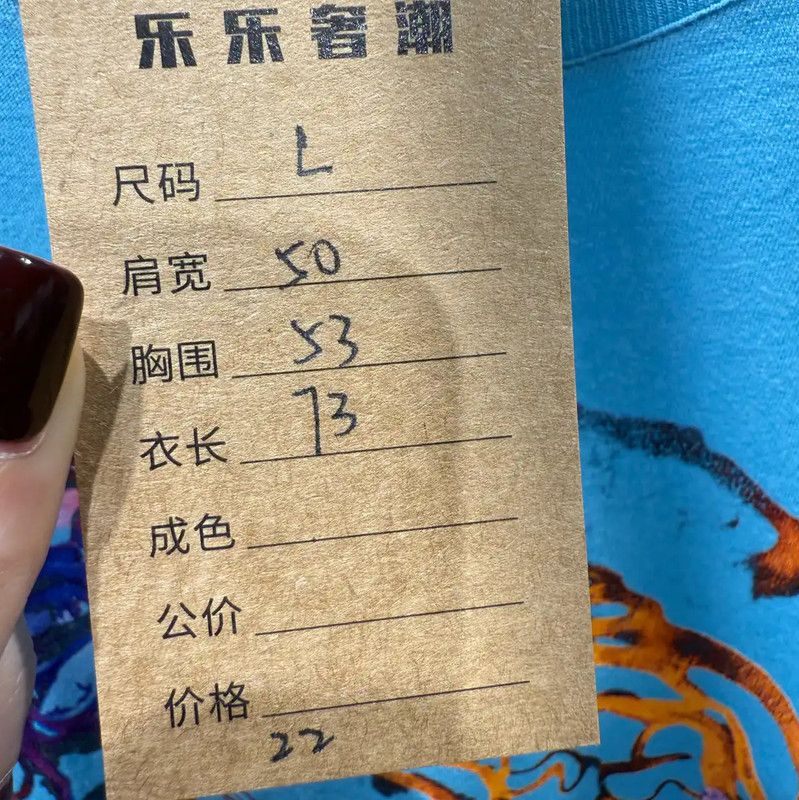 乐乐奢潮
尺码 L
肩宽 50
胸围 53
衣长 73
成色
公价
价格
22